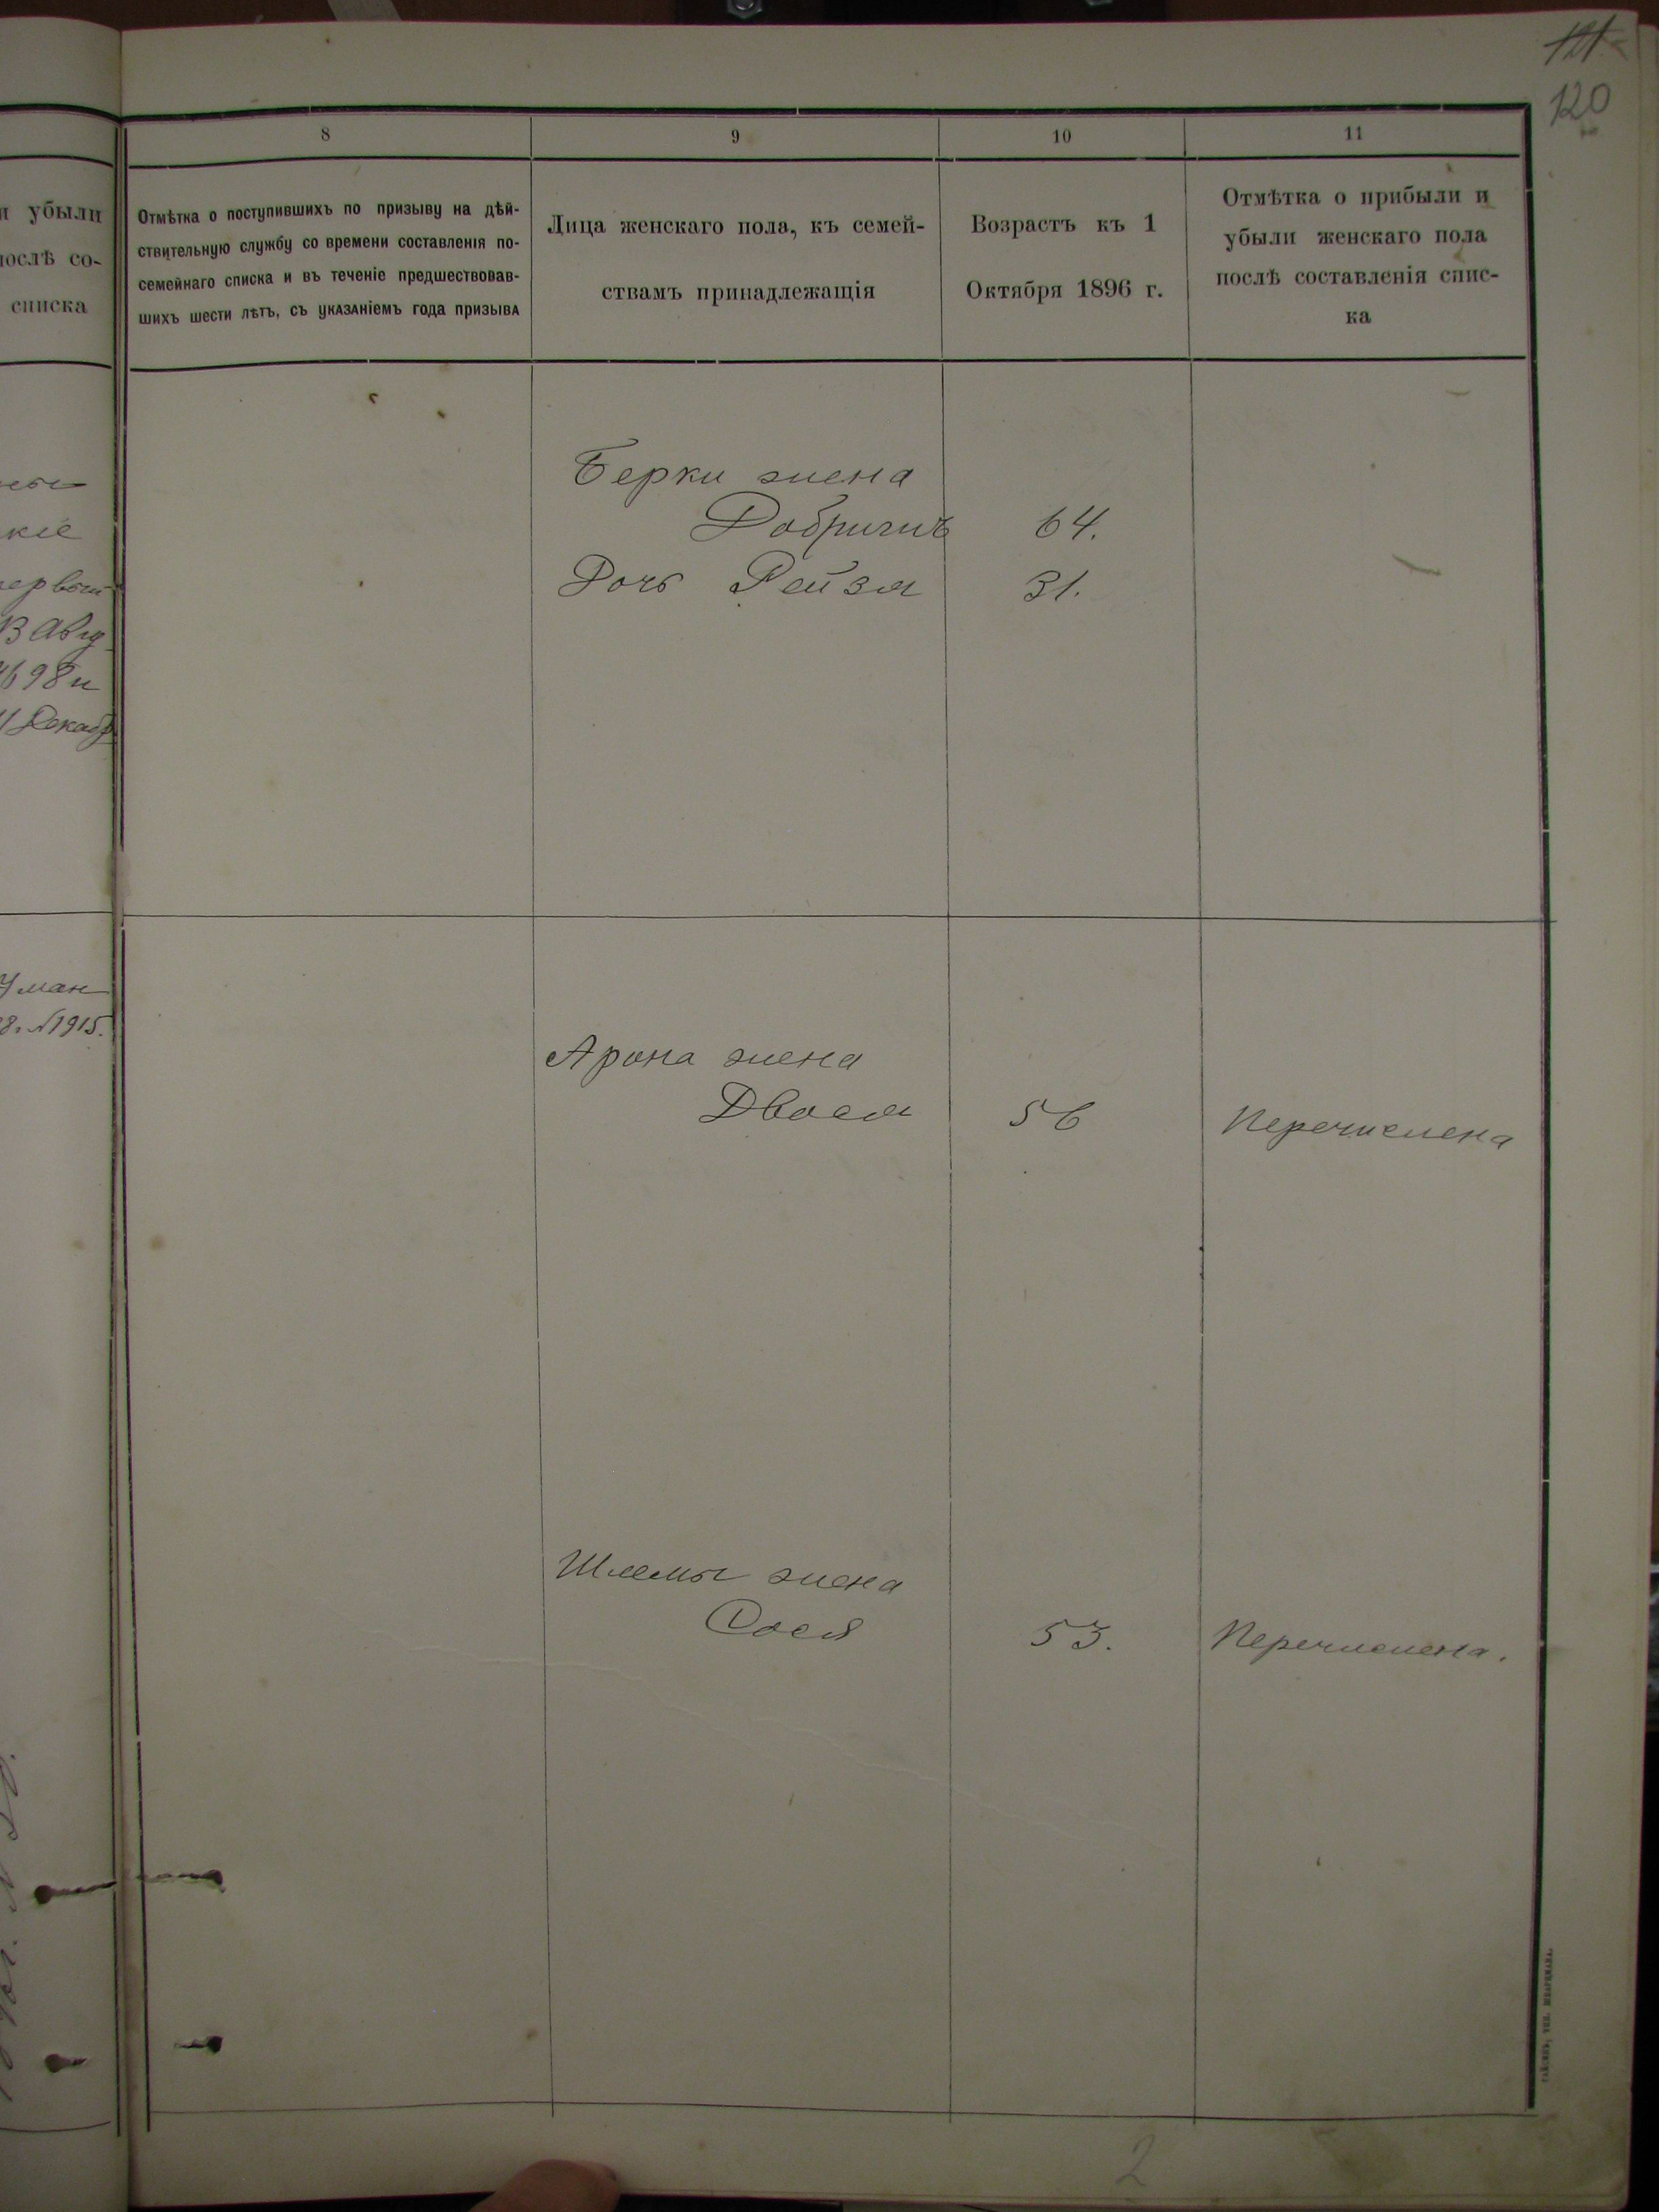 121
120
8
9
10
11
и убыли
послѣ со-
списка
Отмѣтка о поступившихъ по призыву на дѣй-
ствительную службу со времени составленія по-
семейнаго списка и въ теченіе предшествовав-
шихъ шести лѣтъ, съ указаніемъ года призыва
Лица женскаго пола, къ семей-
ствамъ принадлежащія
Возрастъ къ 1
Октября 1896 г.
Отмѣтка о прибыли и
убыли женскаго пола
послѣ составленія спис-
ка
кіе
13 Авгу
98 и
Декабр
Уман
8. №1915.
Берки жена
64.
Дочь Рейзя 31.
Арона жена
Двося 56 Перечислена
Шлемы жена
Сося 53. Перечислена.
2